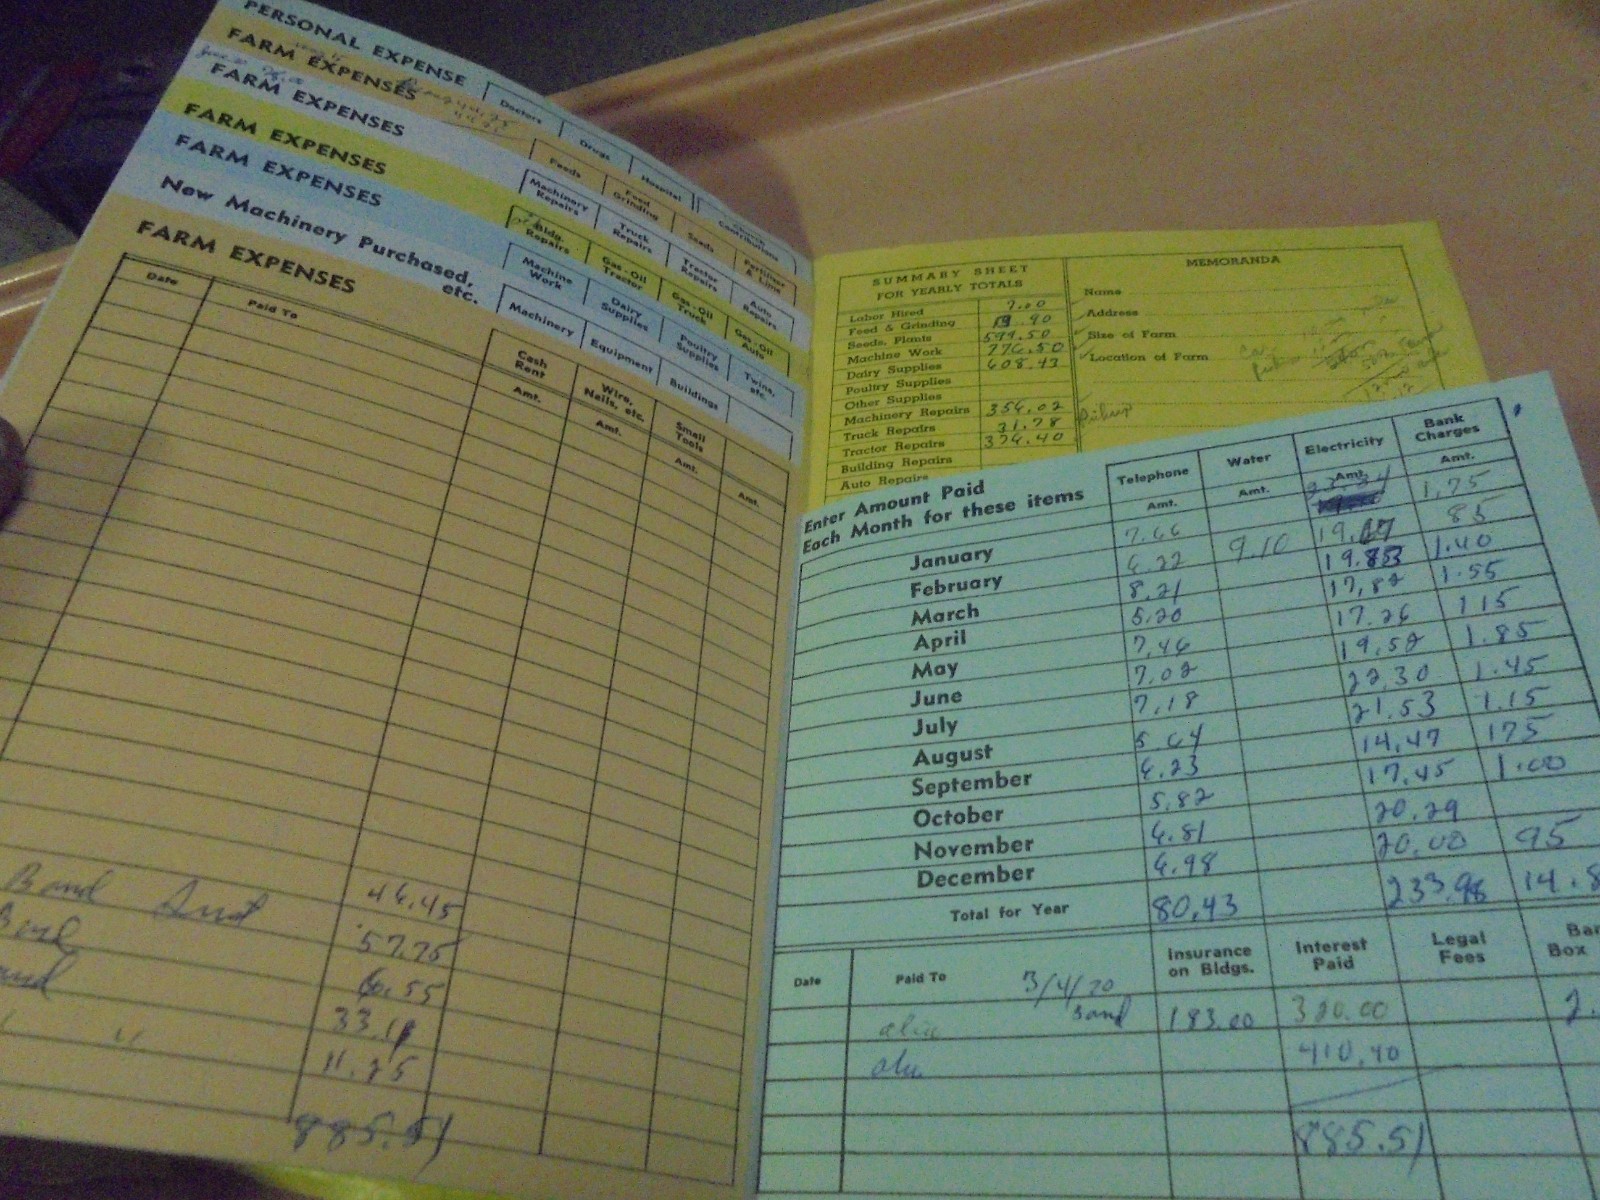 PERSONAL EXPENSE Doctors Drugs Hospital Church Contributions
FARM EXPENSES Feeds Feed Grinding Seeds Fertilizer & Lime
FARM EXPENSES Machinery Repairs Truck Repairs Tractor Repairs Auto Repairs
FARM EXPENSES Bldg. Repairs Gas-Oil Tractor Gas-Oil Truck Gas-Oil Auto
FARM EXPENSES Machine Work Dairy Supplies Poultry Supplies Twine, etc.
New Machinery Purchased, etc. Machinery Equipment Buildings
FARM EXPENSES
Date Paid To Cash Rent Wire, Nails, etc. Small Tools
Amt. Amt. Amt. Amt.
Band 46.45
57.75
6.55
33.11
" 11.25
885.51
SUMMARY SHEET
FOR YEARLY TOTALS
Labor Hired 7.00
Feed & Grinding 90
Seeds, Plants 599.50
Machine Work 776.50
Dairy Supplies 608.43
Poultry Supplies
Other Supplies
Machinery Repairs 356.02
Truck Repairs 31.78
Tractor Repairs 374.40
Building Repairs
Auto Repairs
MEMORANDA
Name
Address
Size of Farm
Location of Farm
Pickup
Enter Amount Paid
Each Month for these items
Telephone Water Electricity Bank Charges
Amt. Amt. Amt. Amt.
January 7.66 1.75
February 6.22 9.10 85
March 8.21 19.83 1.40
April 5.20 17.82 1.55
May 7.46 17.26 1 15
June 7.02 19.52 1.85
July 7.18 22.30 1.45
August 5.64 21.53 1.15
September 6.23 14.47 175
October 5.82 17.45 1.00
November 6.81 20.29
December 6.98 20.00 95
Total for Year 80.43 233.98 14.8
Date Paid To Insurance on Bldgs. Interest Paid Legal Fees Box
3/4/70
Band 183.00 320.00 2.
410.40
885.51